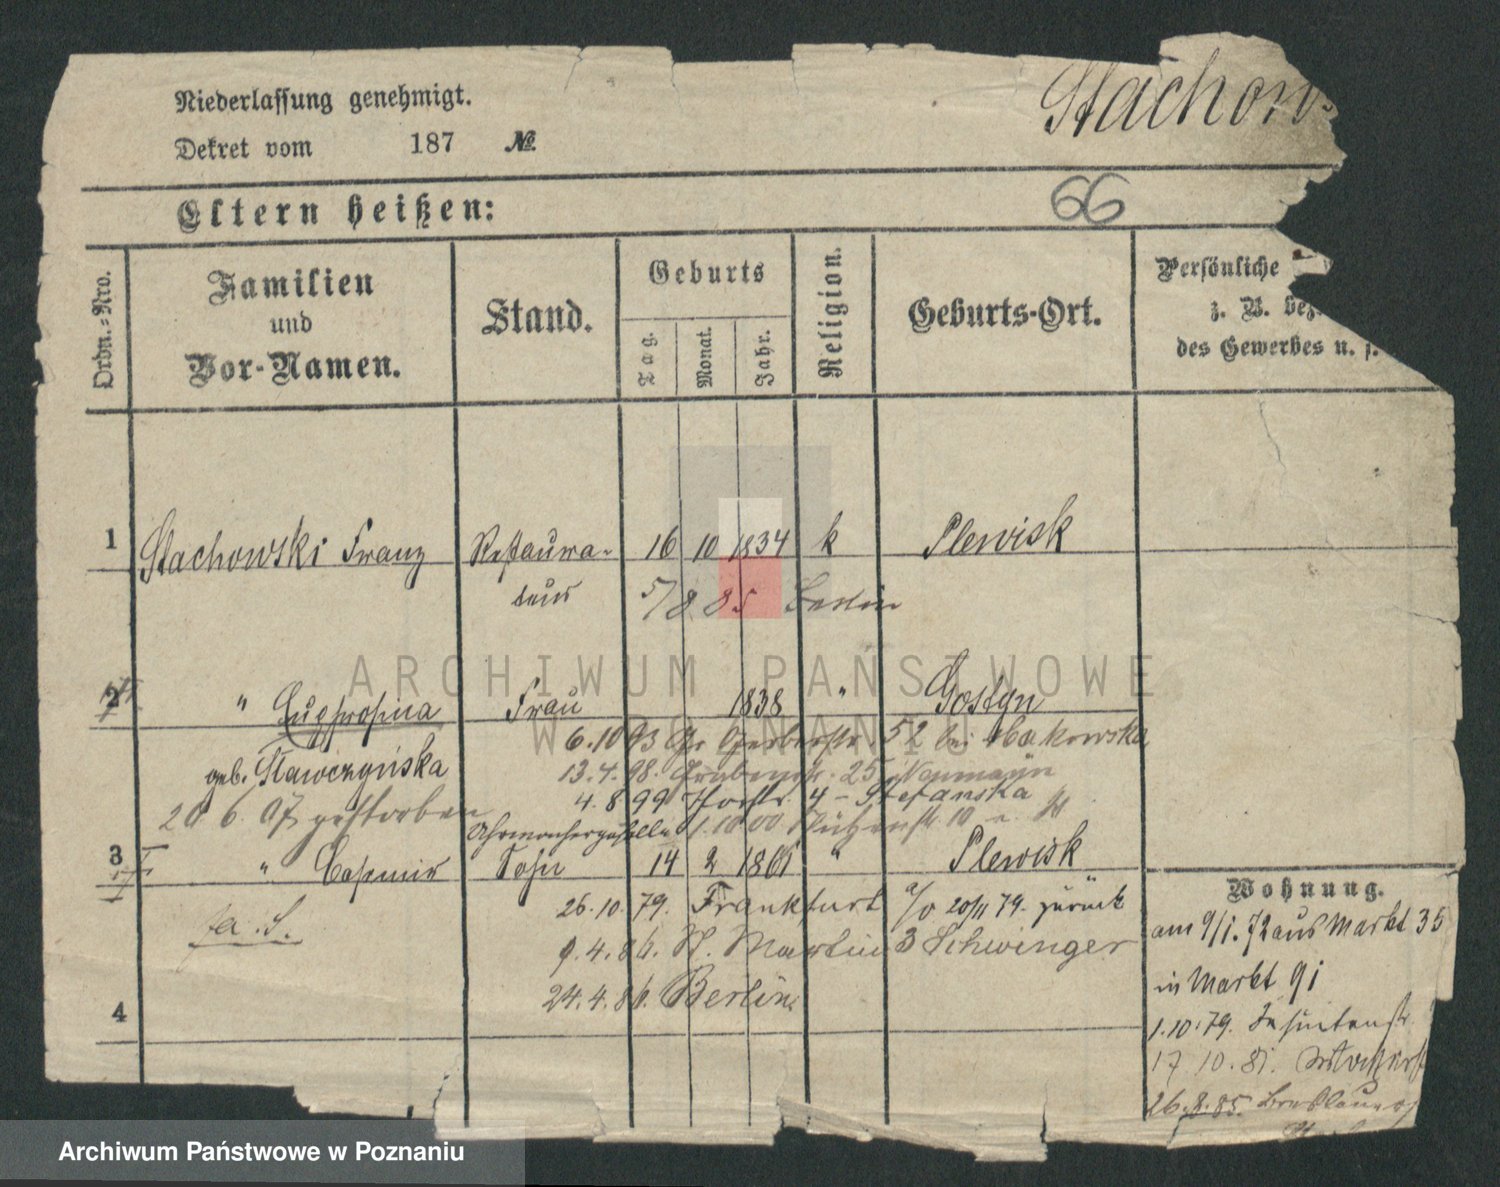 Stachows
Niederlassung genehmigt.
Dekret vom 187 №.
66
Eltern heißen:
Ordn.-Nro.
Familien
und
Vor-Namen.
Stand.
Geburts
Tag.
Monat.
Jahr.
Religion.
Geburts-Ort.
Persönliche
z. B. bez.
des Gewerbes u. s.
1 Stachowski Franz Restaura- 16 10 1834 k Plewisk
teur 5/8 85 Berlin
2 " Eugprosina Frau 1838 " Gostyn
6.10 93 Gr Gerberstr. 52 bei Makowska
geb. Slawczyńska 13.4.98. Grabenstr. 25 Neumann
4.8 99 Torstr. 4 - Stefanska
20 6. 07 gestorben
Uhrmachergehülfe 1.10 00 10
3 " Casimir Sohn 14 2 1861 " Plewisk
26.10.79. Frankfurt a/O 20/11 79. zurück
9.4.86. St. Martin 3 Schwinger
24.4.86. Berlin.
4
Wohnung.
am 9/1.72 aus Markt 35
in Markt 91
1.10.79. Jesuitenstr.
17 10.81.
26.8.85. Breslauer
ARCHIWUM PAŃSTWOWE
W POZNANIU
Archiwum Państwowe w Poznaniu